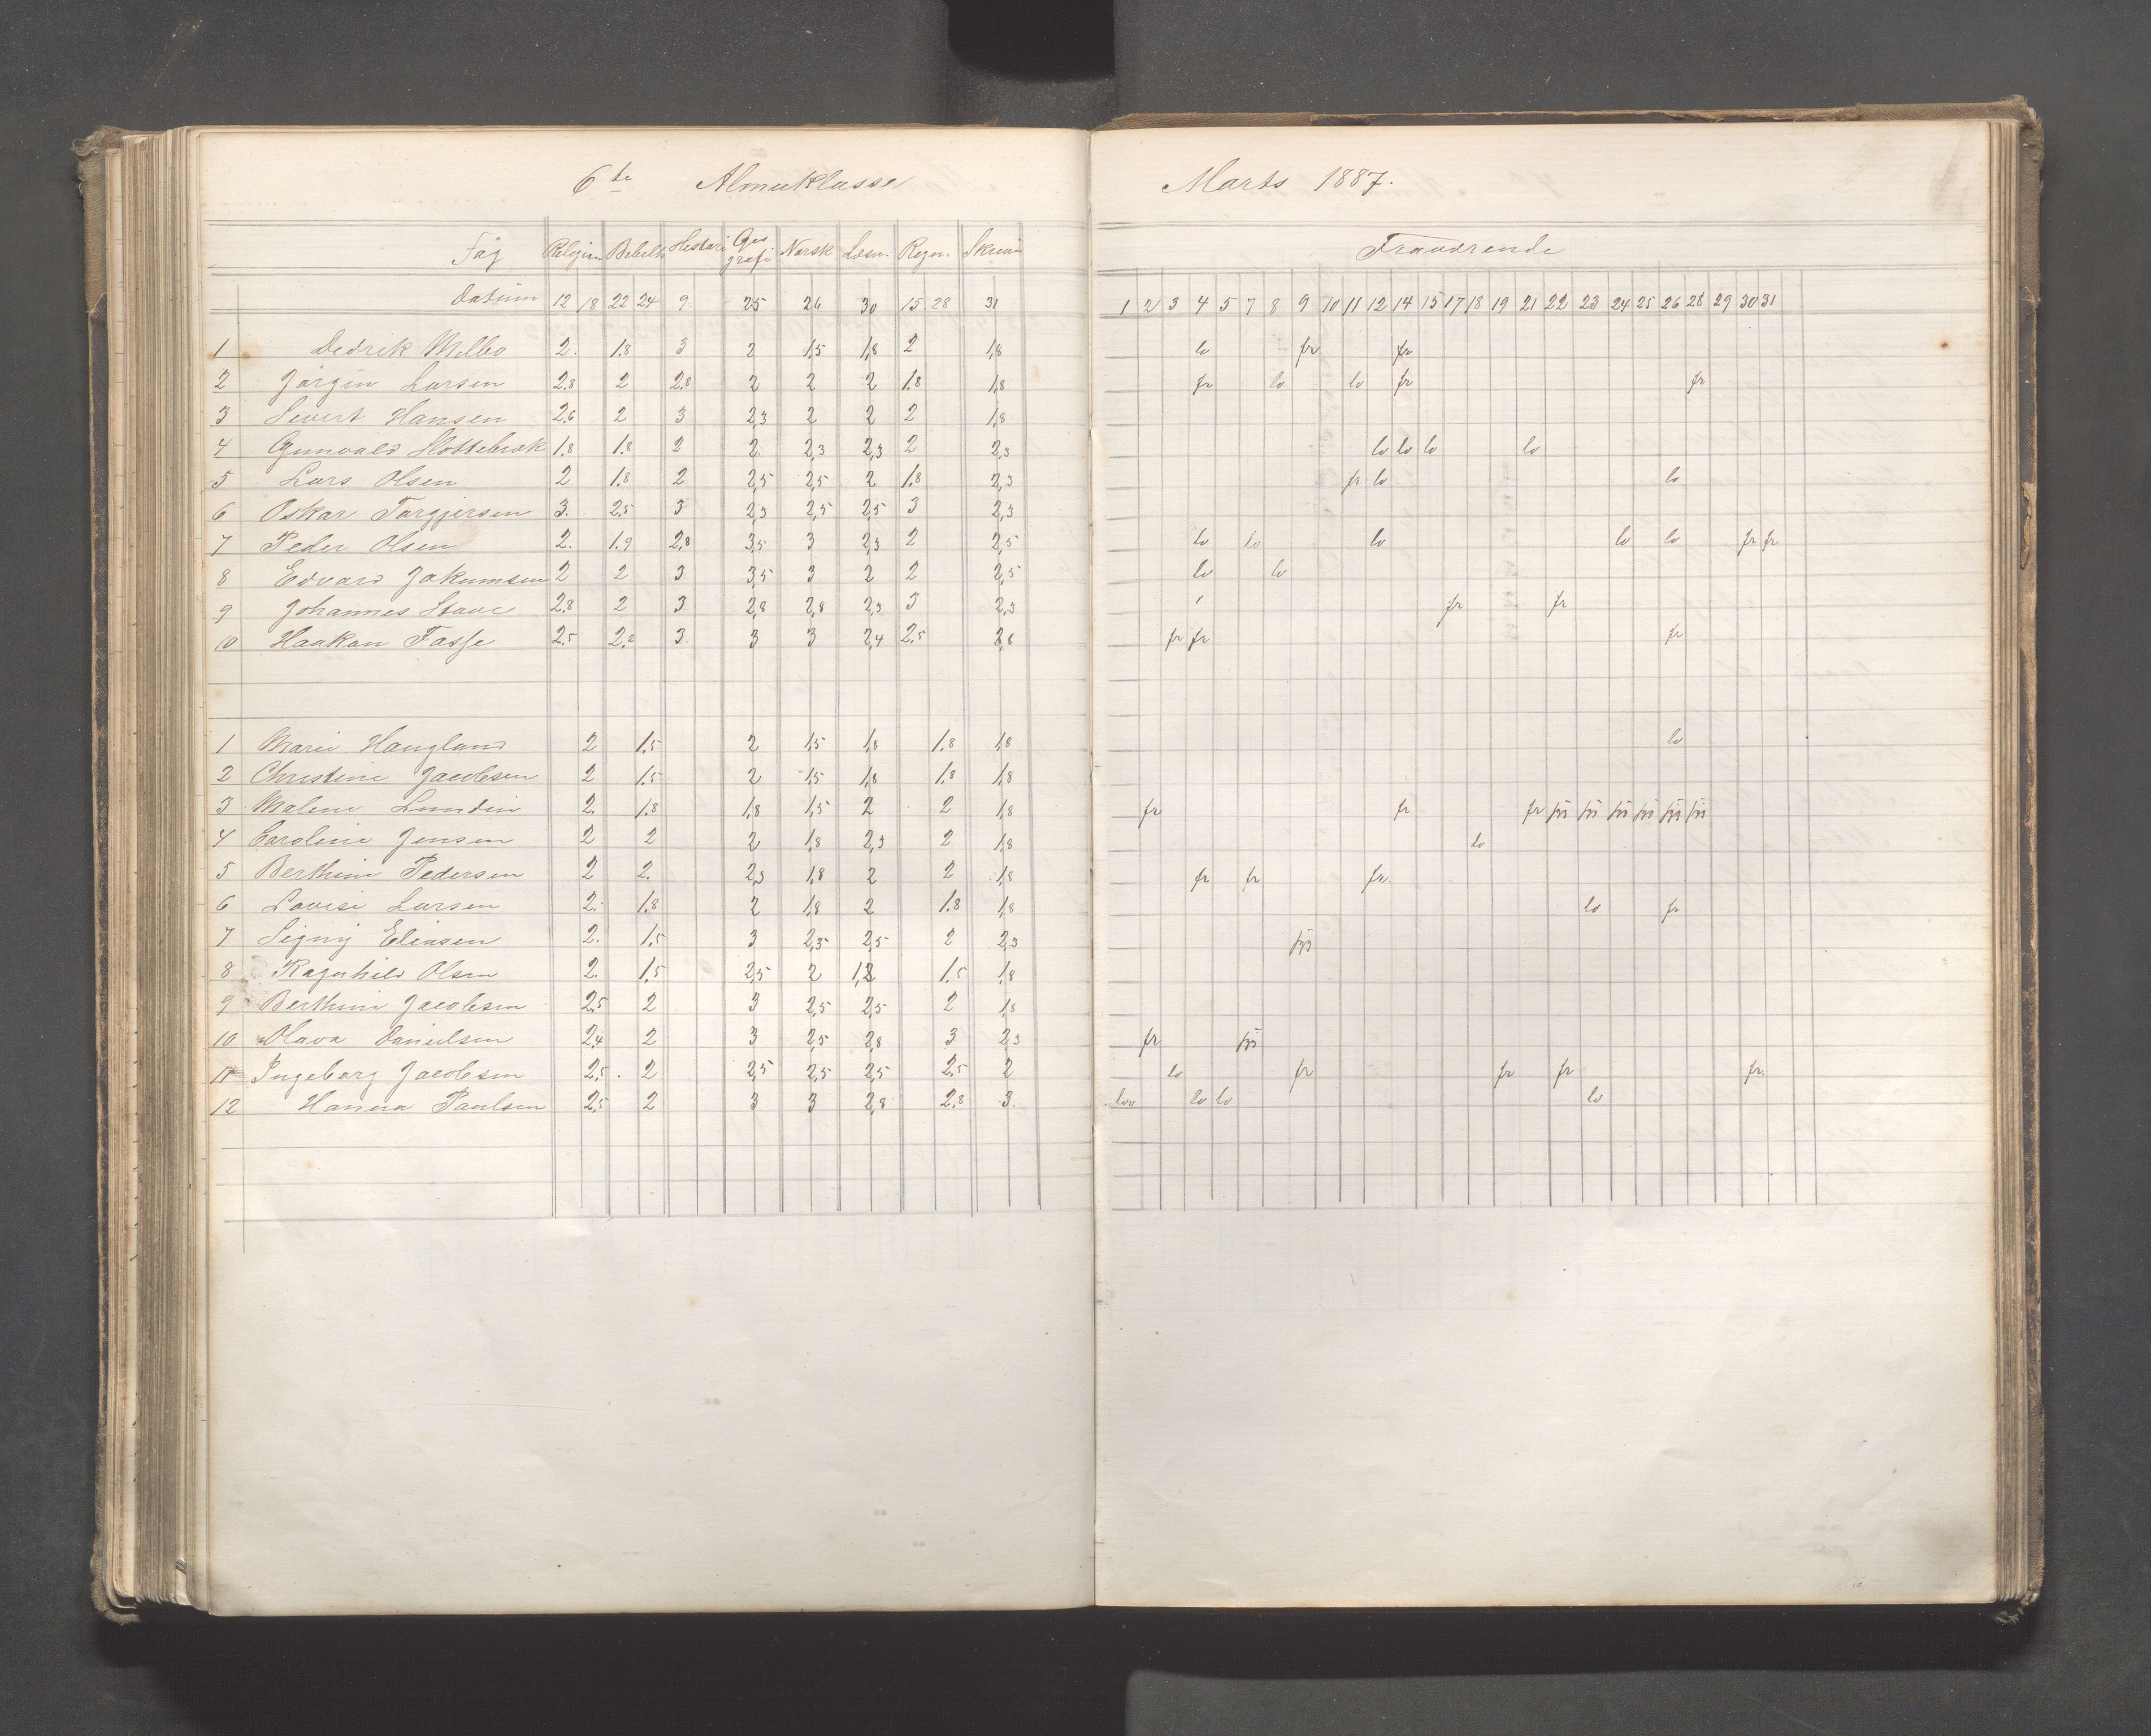 6te Almueklasse
Marts 1887.
Fag Religion Bibelh Histori Geografi Norsk Læsn. Regn. Skrivn
Fraværende
Datum 12 18 22 24 9 25 26 30 15. 28 31
1 2 3 4 5 7 8 9 10 11 12 14 15 17 18 19 21 22 23 24 25 26 28 29 30 31
1 Dedrik Melbo 2. 1.8 3 2 1,5 1,8 2 1,8 lo fr fr
2 Jørgen Larsen 2.8 2 2,8 2 2 2 1.8 1,8 fr lo lo fr fr
3 Severt Hansen 2.6 2 3 2,3 2 2 2 1,8
4 Gunvald Slottebræk 1.8 1.8 2 2. 2,3 2,3 2 2,3 lo lo lo lo
5 Lars Olsen 2 1.8 2 2,5 2,5 2 1.8 2,3 fr lo lo
6 Oskar Torgjersen 3. 2.5 3 2,3 2,5 2,5 3 2,3
7 Peder Olsen 2. 1.9 2,8 3,5 3 2,3 2 2,5 lo lo lo lo lo fr fr
8 Edvard Jakumsen 2 2 3 3,5 3 2 2 2,5 lo lo
9 Johannes Stave 2.8 2 3 2,8 2,8 2,3 3 2,3 fr fr
10 Haakon Fasse 2.5 2.2 3. 3 3 2,4 2.5 2,8 fr fr fr
1 Marie Haugland 2 1.5 2 1,5 1,8 1.8 1,8 lo
2 Christine Jacobsen 2 1.5 2 1,5 1,8 1.8 1,8
3 Malene Lundin 2. 1.8 1,8 1,5 2 2 1,8 fr fr fr
4 Caroline Jensen 2 2 2 1,8 2,3 2 1,8 lo
5 Berthine Pedersen 2 2. 2,3 1,8 2 2 1,8 fr fr fr.
6 Lovise Larsen 2. 1.8 2 1,8 2 1.8 1,8 lo fr
7 Signy Eliasen 2. 1.5 3 2,5 2,5 2 2,3
8 Ragnhild Olsen 2. 1.5 2,5 2 1,8 1.5 1,8
9 Berthine Jacobsen 2.5 2 3 2,5 2,5 2 1,8
10 Olava Danielsen 2.4 2 3 2,5 2,8 3 2,3 fr
11 Ingeborg Jacobsen 2.5. 2 2,5 2,5 2,5 2.5 2 lo fr fr fr fr.
12 Hanna Paulsen 2.5 2 3 3 2,8 2.8 3. lo lo lo